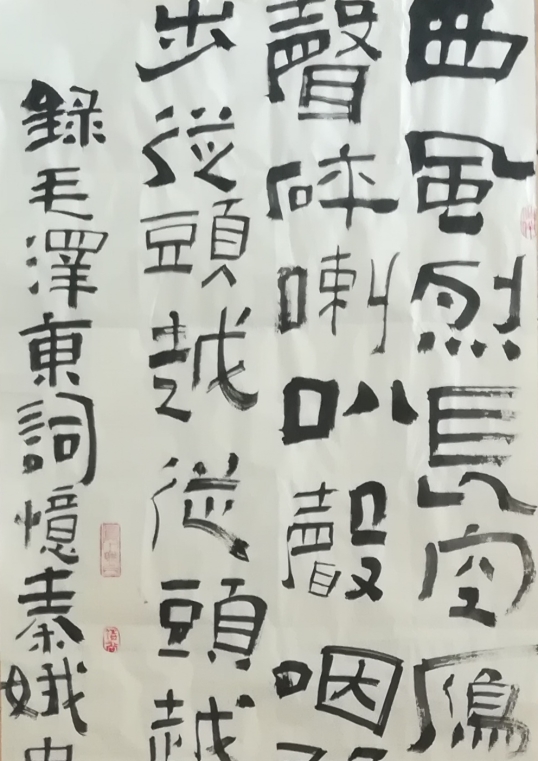 西風烈長空鴈
聲碎喇叭聲咽
步從頭越從頭越
錄毛澤東詞憶秦娥